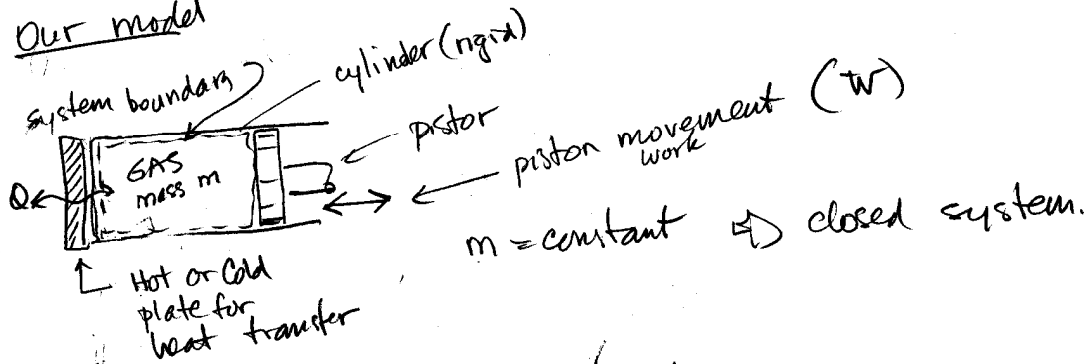 Our model
system boundary
cylinder (rigid)
piston
piston movement (W)
work
GAS
mass m
Q
m = constant ⇒ closed system.
Hot or Cold
plate for
heat transfer